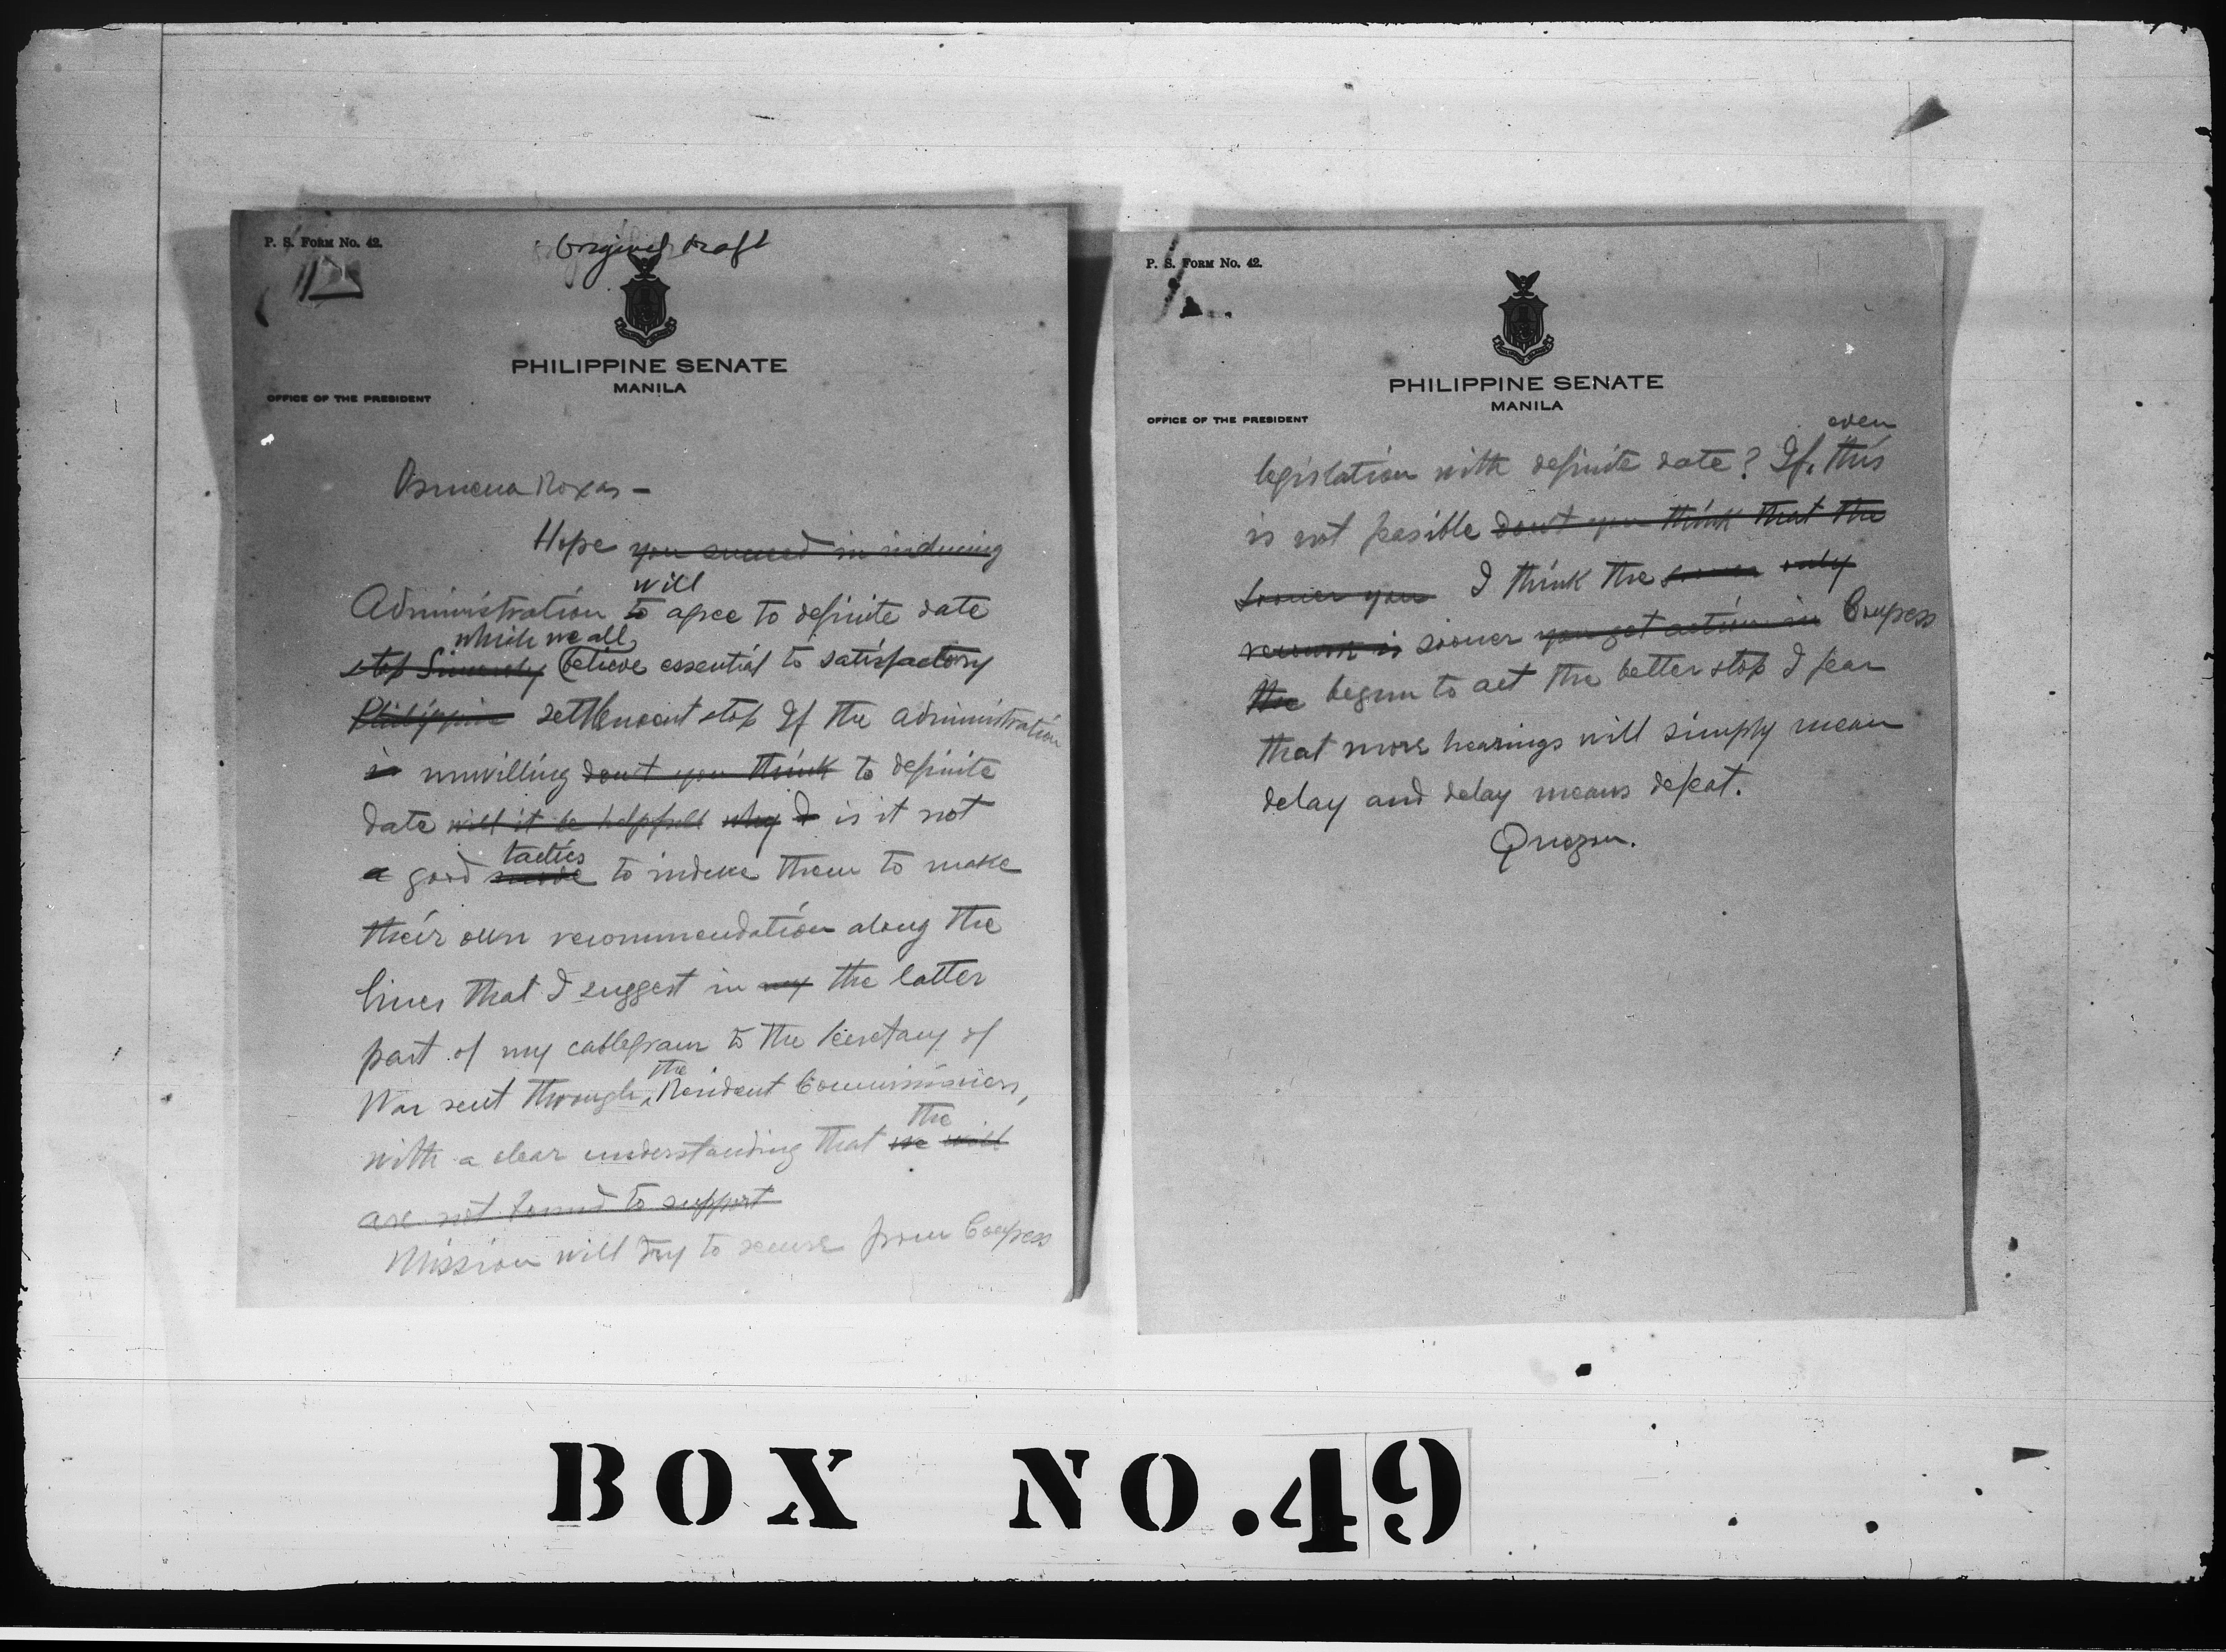 P. S. FORM No. 42.
Original Draft
PHILIPPINE SENATE
MANILA
OFFICE OF THE PRESIDENT
Osmena Roxas –
Hope you succeed in inducing
will
Administration to agree to definite date
which we all
stop Sincerely believe essential to satisfactory
Philippine settlement stop If the administration
is unwilling don't you think to definite
date will it be helpfull why I is it not
tactics
a good to induce them to make
their own recommendation along the
lines that I suggest in my the latter
part of my cablegram to the Secretary of
the
War sent through Resident Commissioners,
the
with a clear understanding that we will
are not bound to support
Mission will try to secure from Congress
P. S. FORM No. 42.
PHILIPPINE SENATE
MANILA
OFFICE OF THE PRESIDENT
even
legislation with definite date? If this
is not possible don't you think that the
sooner you I think the sooner only
is sooner you get action in Congress
the begun to act the better stop I fear
that more hearings will simply mean
delay and delay means defeat.
Quezon.
BOX NO.49